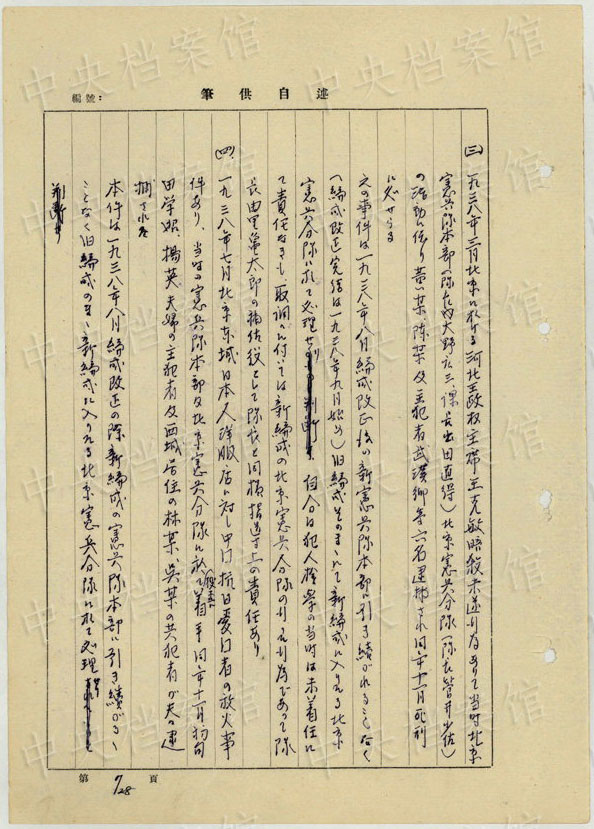 編號:
筆供自述
(三) 一九三八年三月北京に於ける河北政权主席王克敏暗殺未遂行為ありて当時北京
憲兵隊本部(隊長 大野広三 課長 出田直得)北京憲兵分隊(隊長 菅井少佐)
の活動に依り黄某、陳某及主犯者武漢卿等六名逮捕され同年十二月死刑
に処せらる
之の事件は一九三八年八月編成改正後の新憲兵隊本部に引き続がれることなく
(編成改正完結は一九三八年九月始め)旧編成そのまゝにて新編成に入りたる北京
憲兵分隊に於て処理せり 自分は犯人検挙の当時は未着任に
て責任なきも取調べに付いては新編成の北京憲兵分隊の行える行為であって隊
長由里亀太郎の補佐役として隊長と同様指導上の責任あり
(四) 一九三八年七月北京東城日本人洋服店に対し中国抗日愛国者の放火事
件あり、当時の憲兵隊本部及北京憲兵分隊に於て捜査に着手同年十一月初旬
田学昭、楊英、夫婦の主犯者及西城居住の林某、呉某の共犯者が夫々逮
捕された
本件は一九三八年八月編成改正の際新編成の憲兵隊本部に引き続がるゝ
ことなく旧編成のまゝ新編成に入りたる北京憲兵分隊に於て処理
第 7/28 頁
中央档案馆